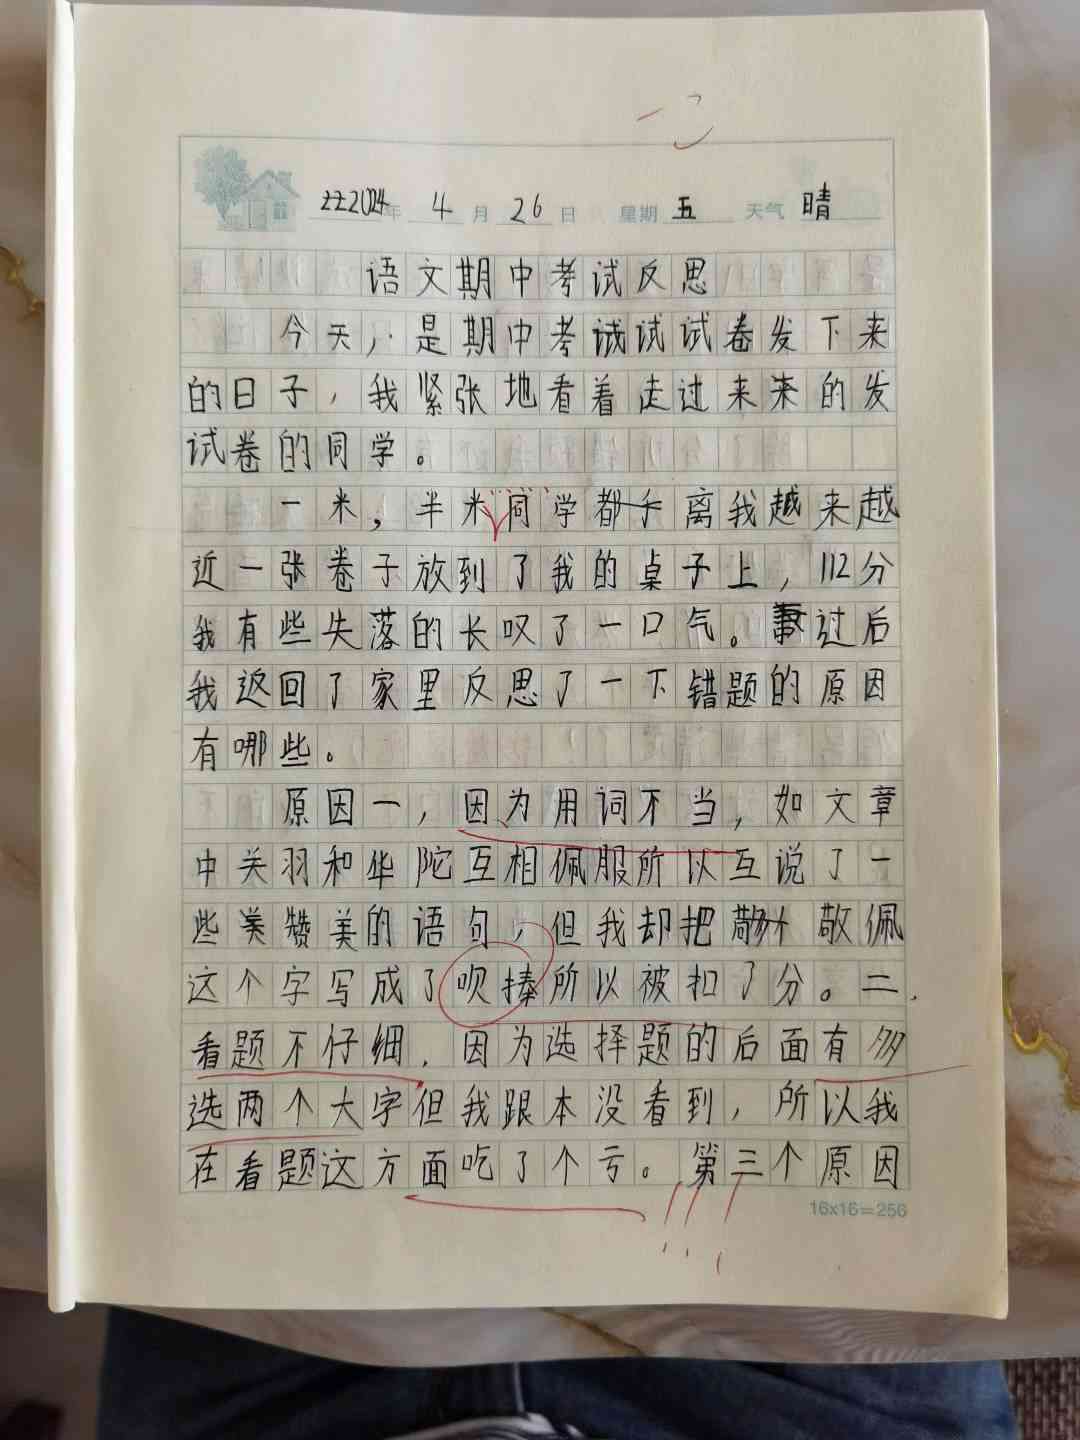 222024年 4 月 26 日 星期 五 天气 晴
语文期中考试反思
今天，是期中考试试卷发下来
的日子，我紧张地看着走过来来的发
试卷的同学。
一米，半米同学都离我越来越
近一张卷子放到了我的桌子上，112分
我有些失落的长叹了一口气。过后
我返回了家里反思了一下错题的原因
有哪些。
原因一，因为用词不当，如文章
中关羽和华陀互相佩服所以互说了一
些赞美的语句，但我却把敬佩
这个字写成了吹捧所以被扣了分。二、
看题不仔细，因为选择题的后面有多
选两个大字但我跟本没看到，所以我
在看题这方面吃了个亏。第三个原因
16x16=256